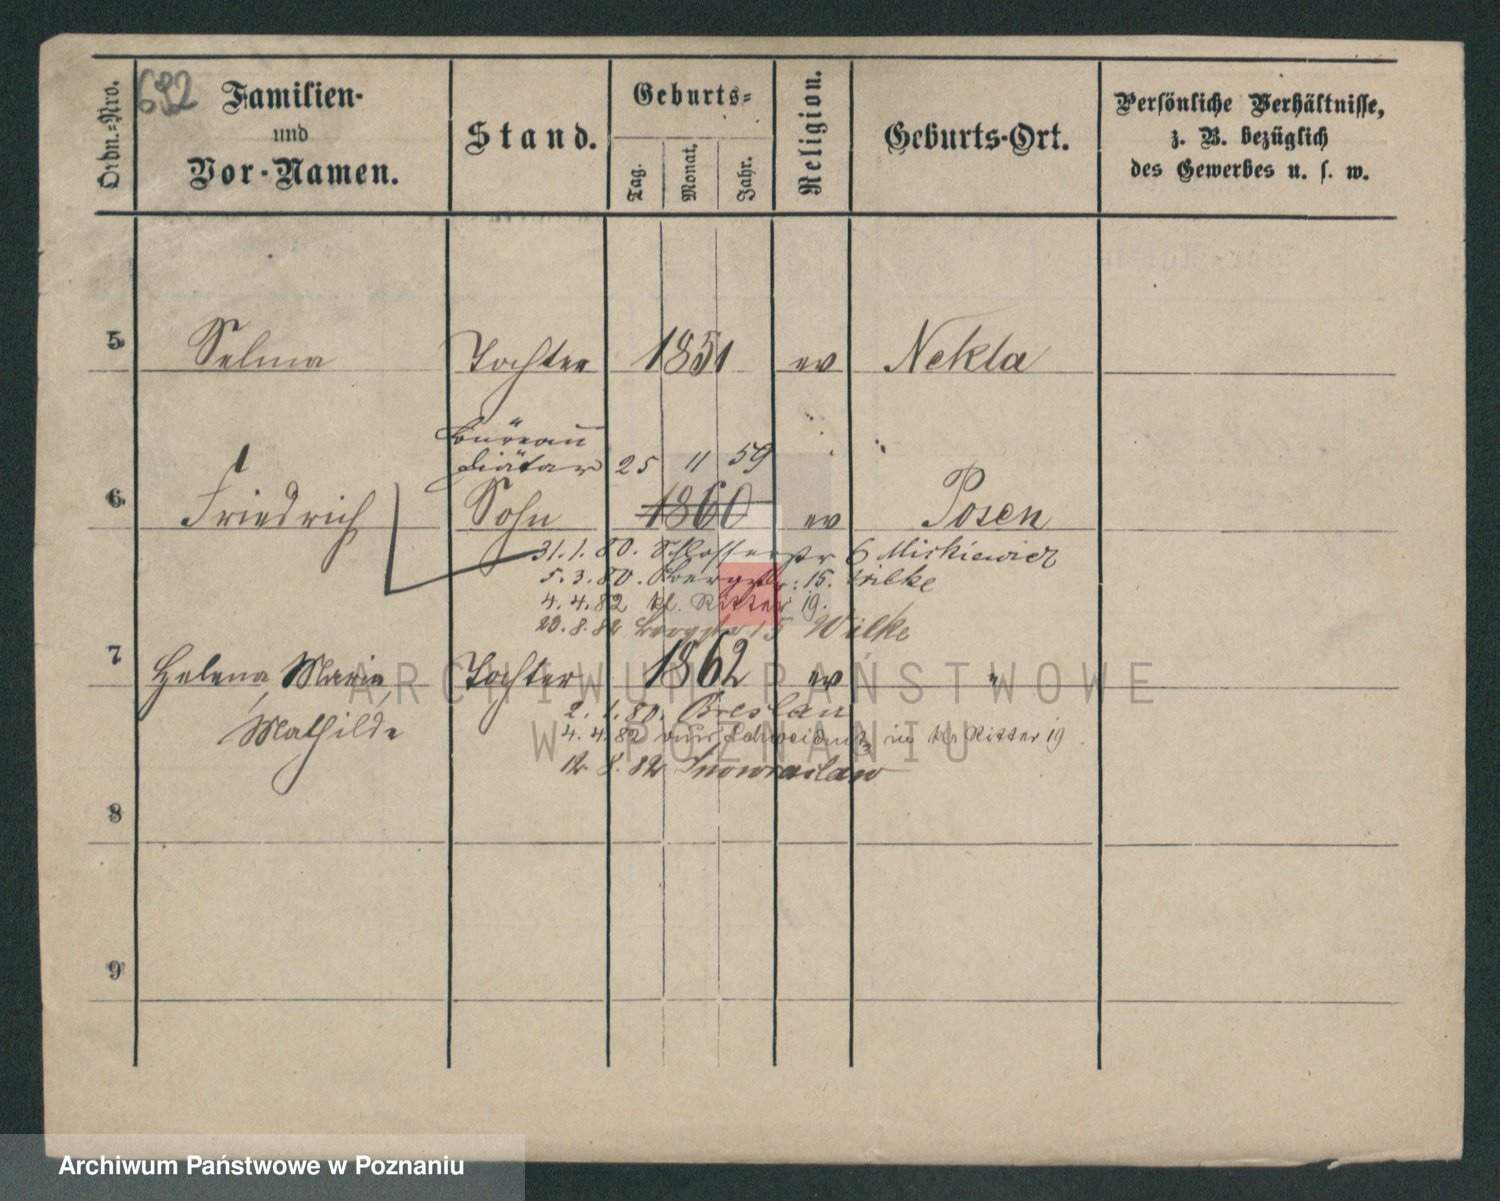 692
Ordn.-Nro.
Familien-
und
Vor-Namen.
Stand.
Geburts-
Tag.
Monat.
Jahr.
Religion.
Geburts-Ort.
Persönliche Verhältnisse,
z. B. bezüglich
des Gewerbes u. s. w.
5 Selma Tochter 1851 ev Nekla
Büreau
Diätar 25 11 59
6 Friedrich Sohn 1860 ev Posen
31.1.80. Schlosserstr 6 Mickiewicz
5.3.80. Bergstr: 15. Wilke
4.4.82 kl. Ritter 19.
23.8.82 Bergstr 15 Wilke
7 Helena, Maria, Tochter 1862 ev "
Mathilde
2.1.80. Breslau
4.4.82 aus Schweidnitz in kl Ritter 19
12.8.82 Inowraclaw
8
9
ARCHIWUM PAŃSTWOWE
W POZNANIU
Archiwum Państwowe w Poznaniu